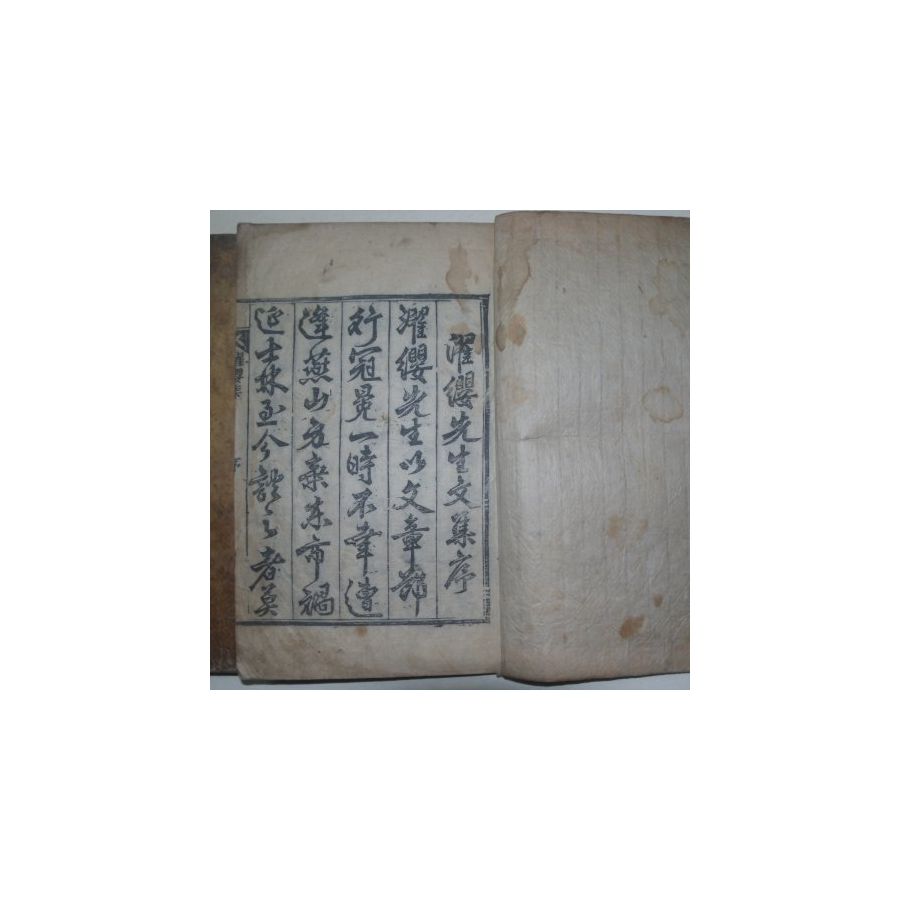 濯纓先生文集序
濯纓先生以文章節
行冠冕一時不幸遭
逢燕山身棄東市禍
延士林至今談之者莫
濯纓集